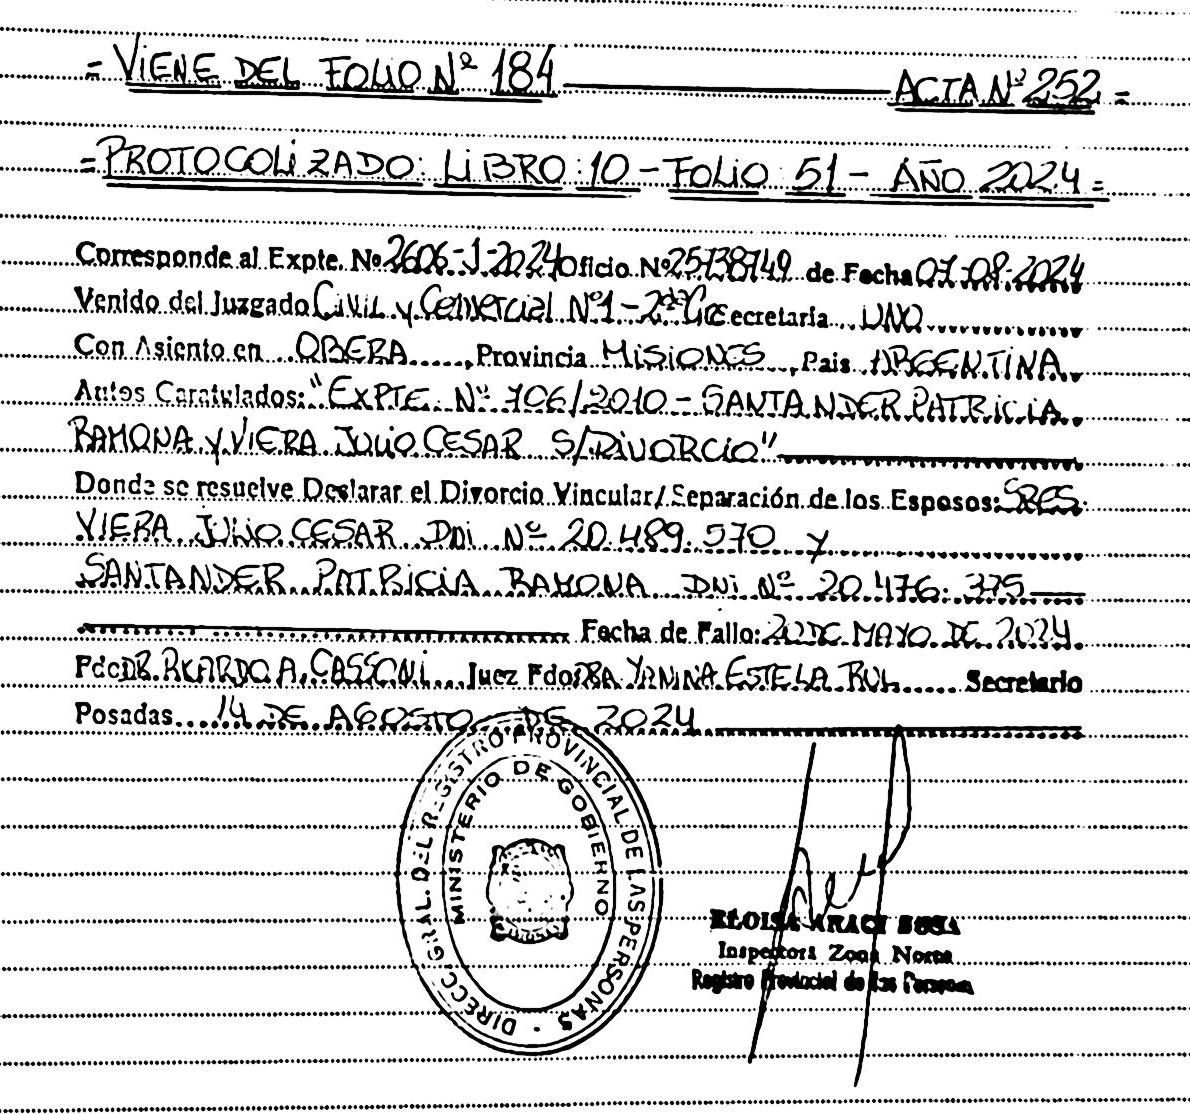 = VIENE DEL FOLIO Nº 184 ACTA Nº 252 =
= PROTOCOLIZADO: LIBRO: 10 - FOLIO 51 - AÑO 2024 =
Corresponde al Expte. Nº 2606-J-2024 Oficio Nº 25738749 de Fecha 07-08-2024
Venido del Juzgado Civil y Comercial Nº1 - 2da Secretaria UNO
Con Asiento en OBERA, Provincia MISIONES, Pais ARGENTINA
Autos Caratulados: "EXPTE. Nº 706/2010 - SANTANDER PATRICIA
RAMONA Y VIERA JULIO CESAR S/DIVORCIO"
Donde se resuelve Declarar el Divorcio Vincular/Separación de los Esposos: SRES.
VIERA JULIO CESAR DNI Nº 20.489.570 y
SANTANDER PATRICIA RAMONA DNI Nº 20.476.375
Fecha de Fallo: 20 DE MAYO DE 2024
Fdo DR. RICARDO A. CASSONI Juez Fdo: DRA YANINA ESTELA RUL Secretario
Posadas 14 DE AGOSTO DE 2024
DIRECC. GRAL. DEL REGISTRO PROVINCIAL DE LAS PERSONAS
MINISTERIO DE GOBIERNO
ELOISA ARACI SOSA
Inspectora Zona Norte
Registro Provincial de las Personas